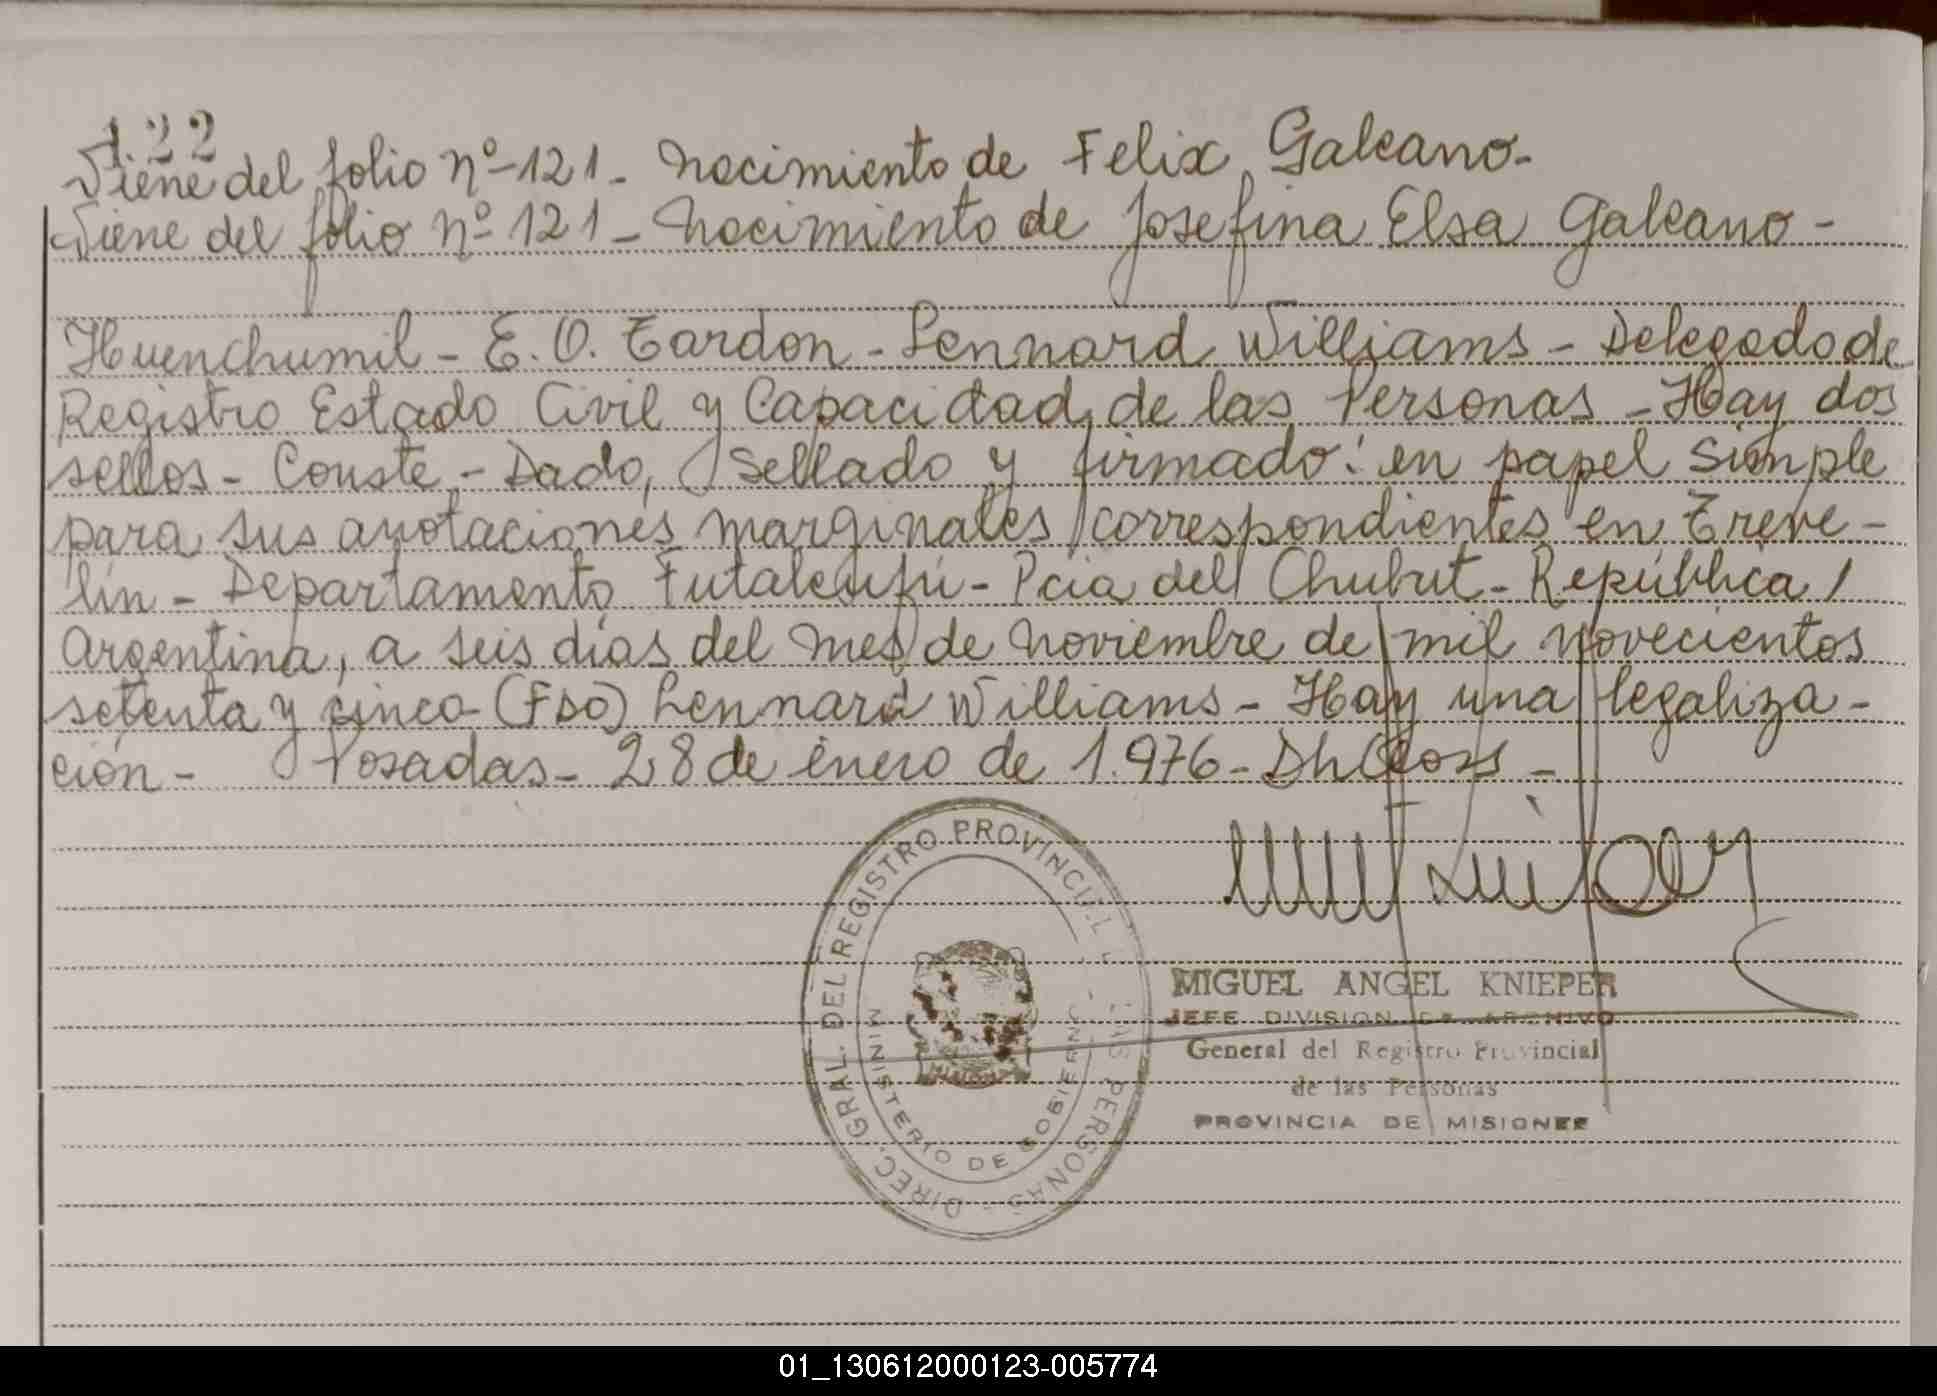 122
Viene del folio nº-121- Nacimiento de Felix Galeano-
Viene del folio nº 121- Nacimiento de Josefina Elsa Galeano-
Huenchumil - E. O. Tardon - Lennard Williams - Delegado de
Registro Estado Civil y Capacidad de las Personas - Hay dos
sellos - Conste - Dado, sellado y firmado: en papel simple
para sus anotaciones marginales correspondientes en Treve-
lin - Departamento Futaleufú - Pcia del Chubut - República
Argentina, a seis días del mes de Noviembre de mil novecientos
setenta y cinco - (Fdo) Lennard Williams - Hay una legaliza-
ción - Posadas - 28 de enero de 1.976 -
DIREC. GRAL. DEL REGISTRO PROVINCIAL DE LAS PERSONAS -
MINISTERIO DE GOBIERNO
MIGUEL ANGEL KNIEPER
JEFE DIVISION DE ARCHIVO
General del Registro Provincial
de las Personas
PROVINCIA DE MISIONES
01_130612000123-005774